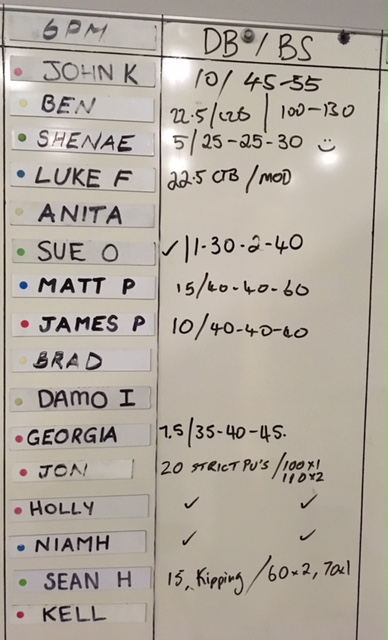 6PM DB / BS
JOHN K 10 / 45-55
BEN 22.5/CTB | 100-130
SHENAE 5/25-25-30
LUKE F 22.5 CTB / MOD
ANITA
SUE O ✓ |1-30-2-40
MATT P 15/40-40-60
JAMES P 10/40-40-40
BRAD
DAMO I
GEORGIA 7.5/35-40-45.
JON 20 STRICT PU'S / 100x1
110x2
HOLLY ✓ ✓
NIAMH ✓ ✓
SEAN H 15, Kipping / 60x2, 70x1
KELL